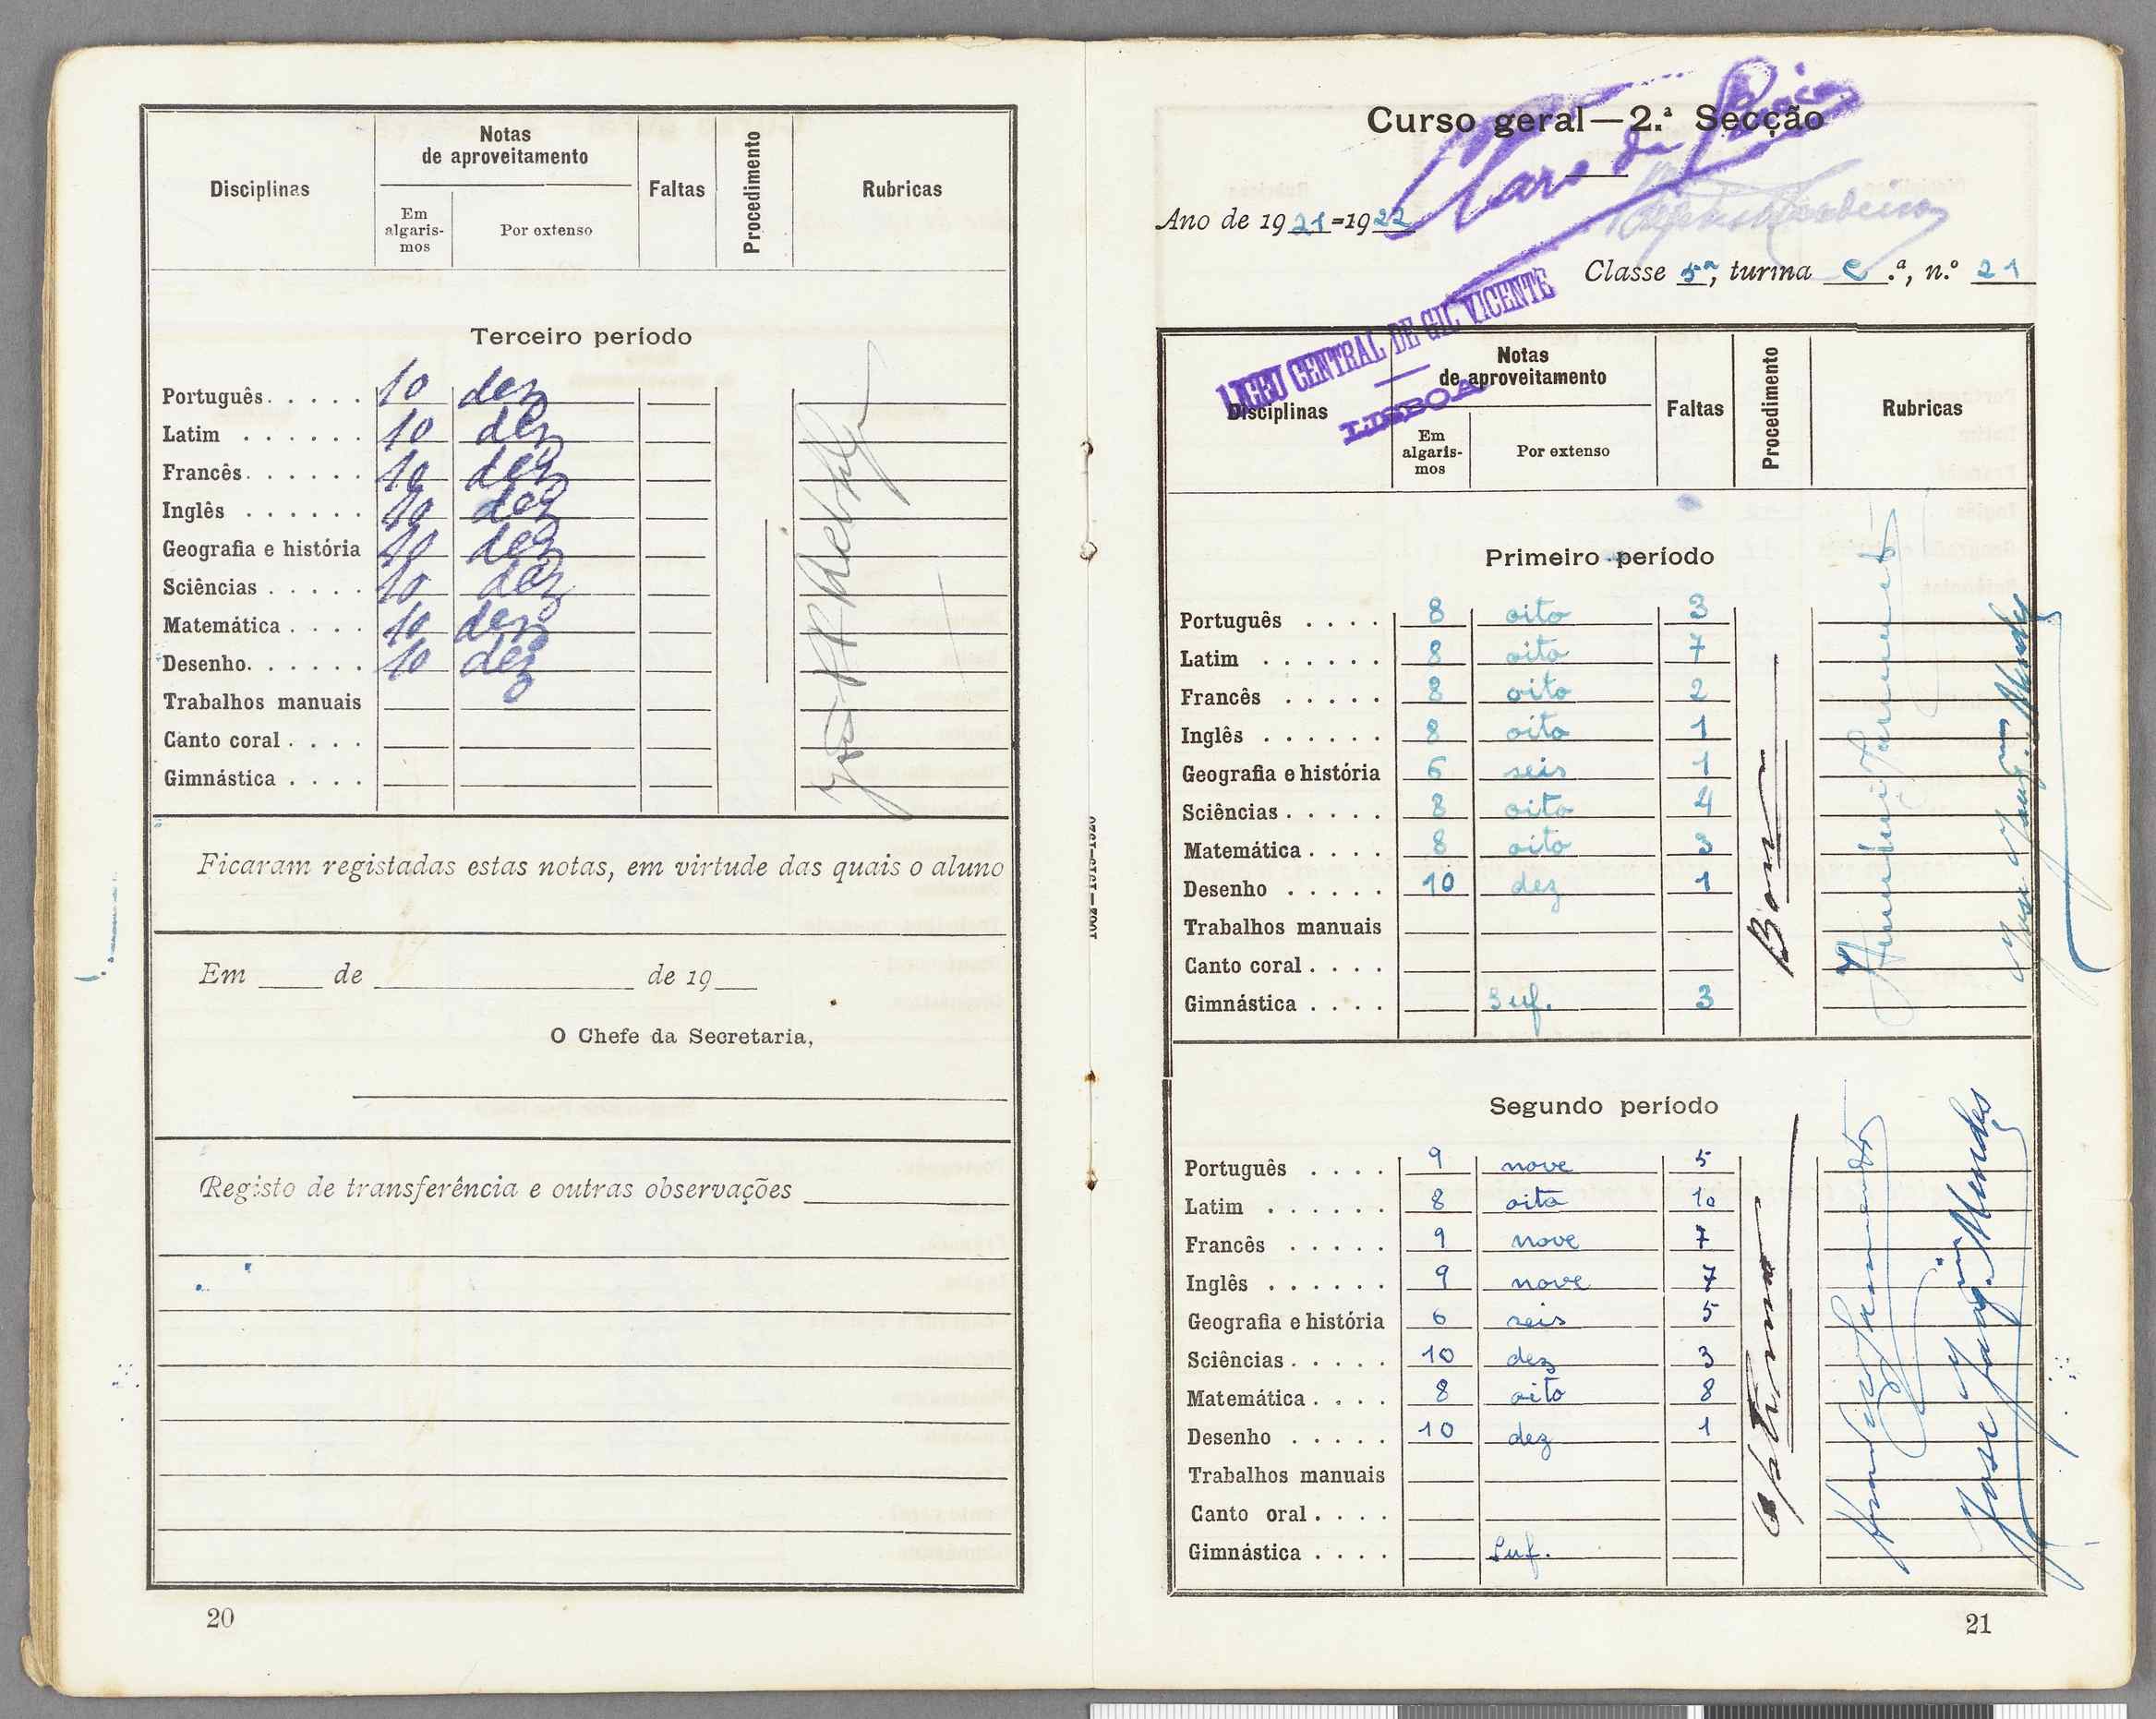 Disciplinas
Notas
de aproveitamento
Em
algaris-
mos
Por extenso
Faltas
Procedimento
Rubricas
Terceiro período
Português. . . . . 10 dez
Latim . . . . . . 10 dez
Francês. . . . . . 10 dez
Inglês . . . . . . 10 dez
Geografia e história 10 dez
Sciências . . . . . 10 dez
Matemática . . . . 10 dez
Desenho. . . . . . 10 dez
Trabalhos manuais
Canto coral . . . .
Gimnástica . . . .
Ficaram registadas estas notas, em virtude das quais o aluno
Em ____ de ____ de 19__
O Chefe da Secretaria,
Registo de transferência e outras observações
20
1002—1919-1920
Curso geral—2.ª Secção
Ano de 1921=1922
Classe 5ª, turma C.ª, n.º 21
LICEU CENTRAL DE GIL VICENTE
LISBOA
Disciplinas
Notas
de aproveitamento
Em
algaris-
mos
Por extenso
Faltas
Procedimento
Rubricas
Primeiro período
Português . . . . 8 oito 3
Latim . . . . . . 8 oito 7
Francês . . . . . 8 oito 2
Inglês . . . . . . 8 oito 1
Geografia e história 6 seis 1
Sciências . . . . . 8 oito 4
Matemática . . . . 8 oito 3
Desenho . . . . . 10 dez 1
Trabalhos manuais
Canto coral . . . .
Gimnástica . . . . Suf. 3
Bom
Segundo período
Português . . . . 9 nove 5
Latim . . . . . . 8 oito 10
Francês . . . . . 9 nove 7
Inglês . . . . . . 9 nove 7
Geografia e história 6 seis 5
Sciências . . . . . 10 dez 3
Matemática . . . . 8 oito 8
Desenho . . . . . 10 dez 1
Trabalhos manuais
Canto oral . . . .
Gimnástica . . . . Suf.
Optimo
José Joaqim Mendes
21